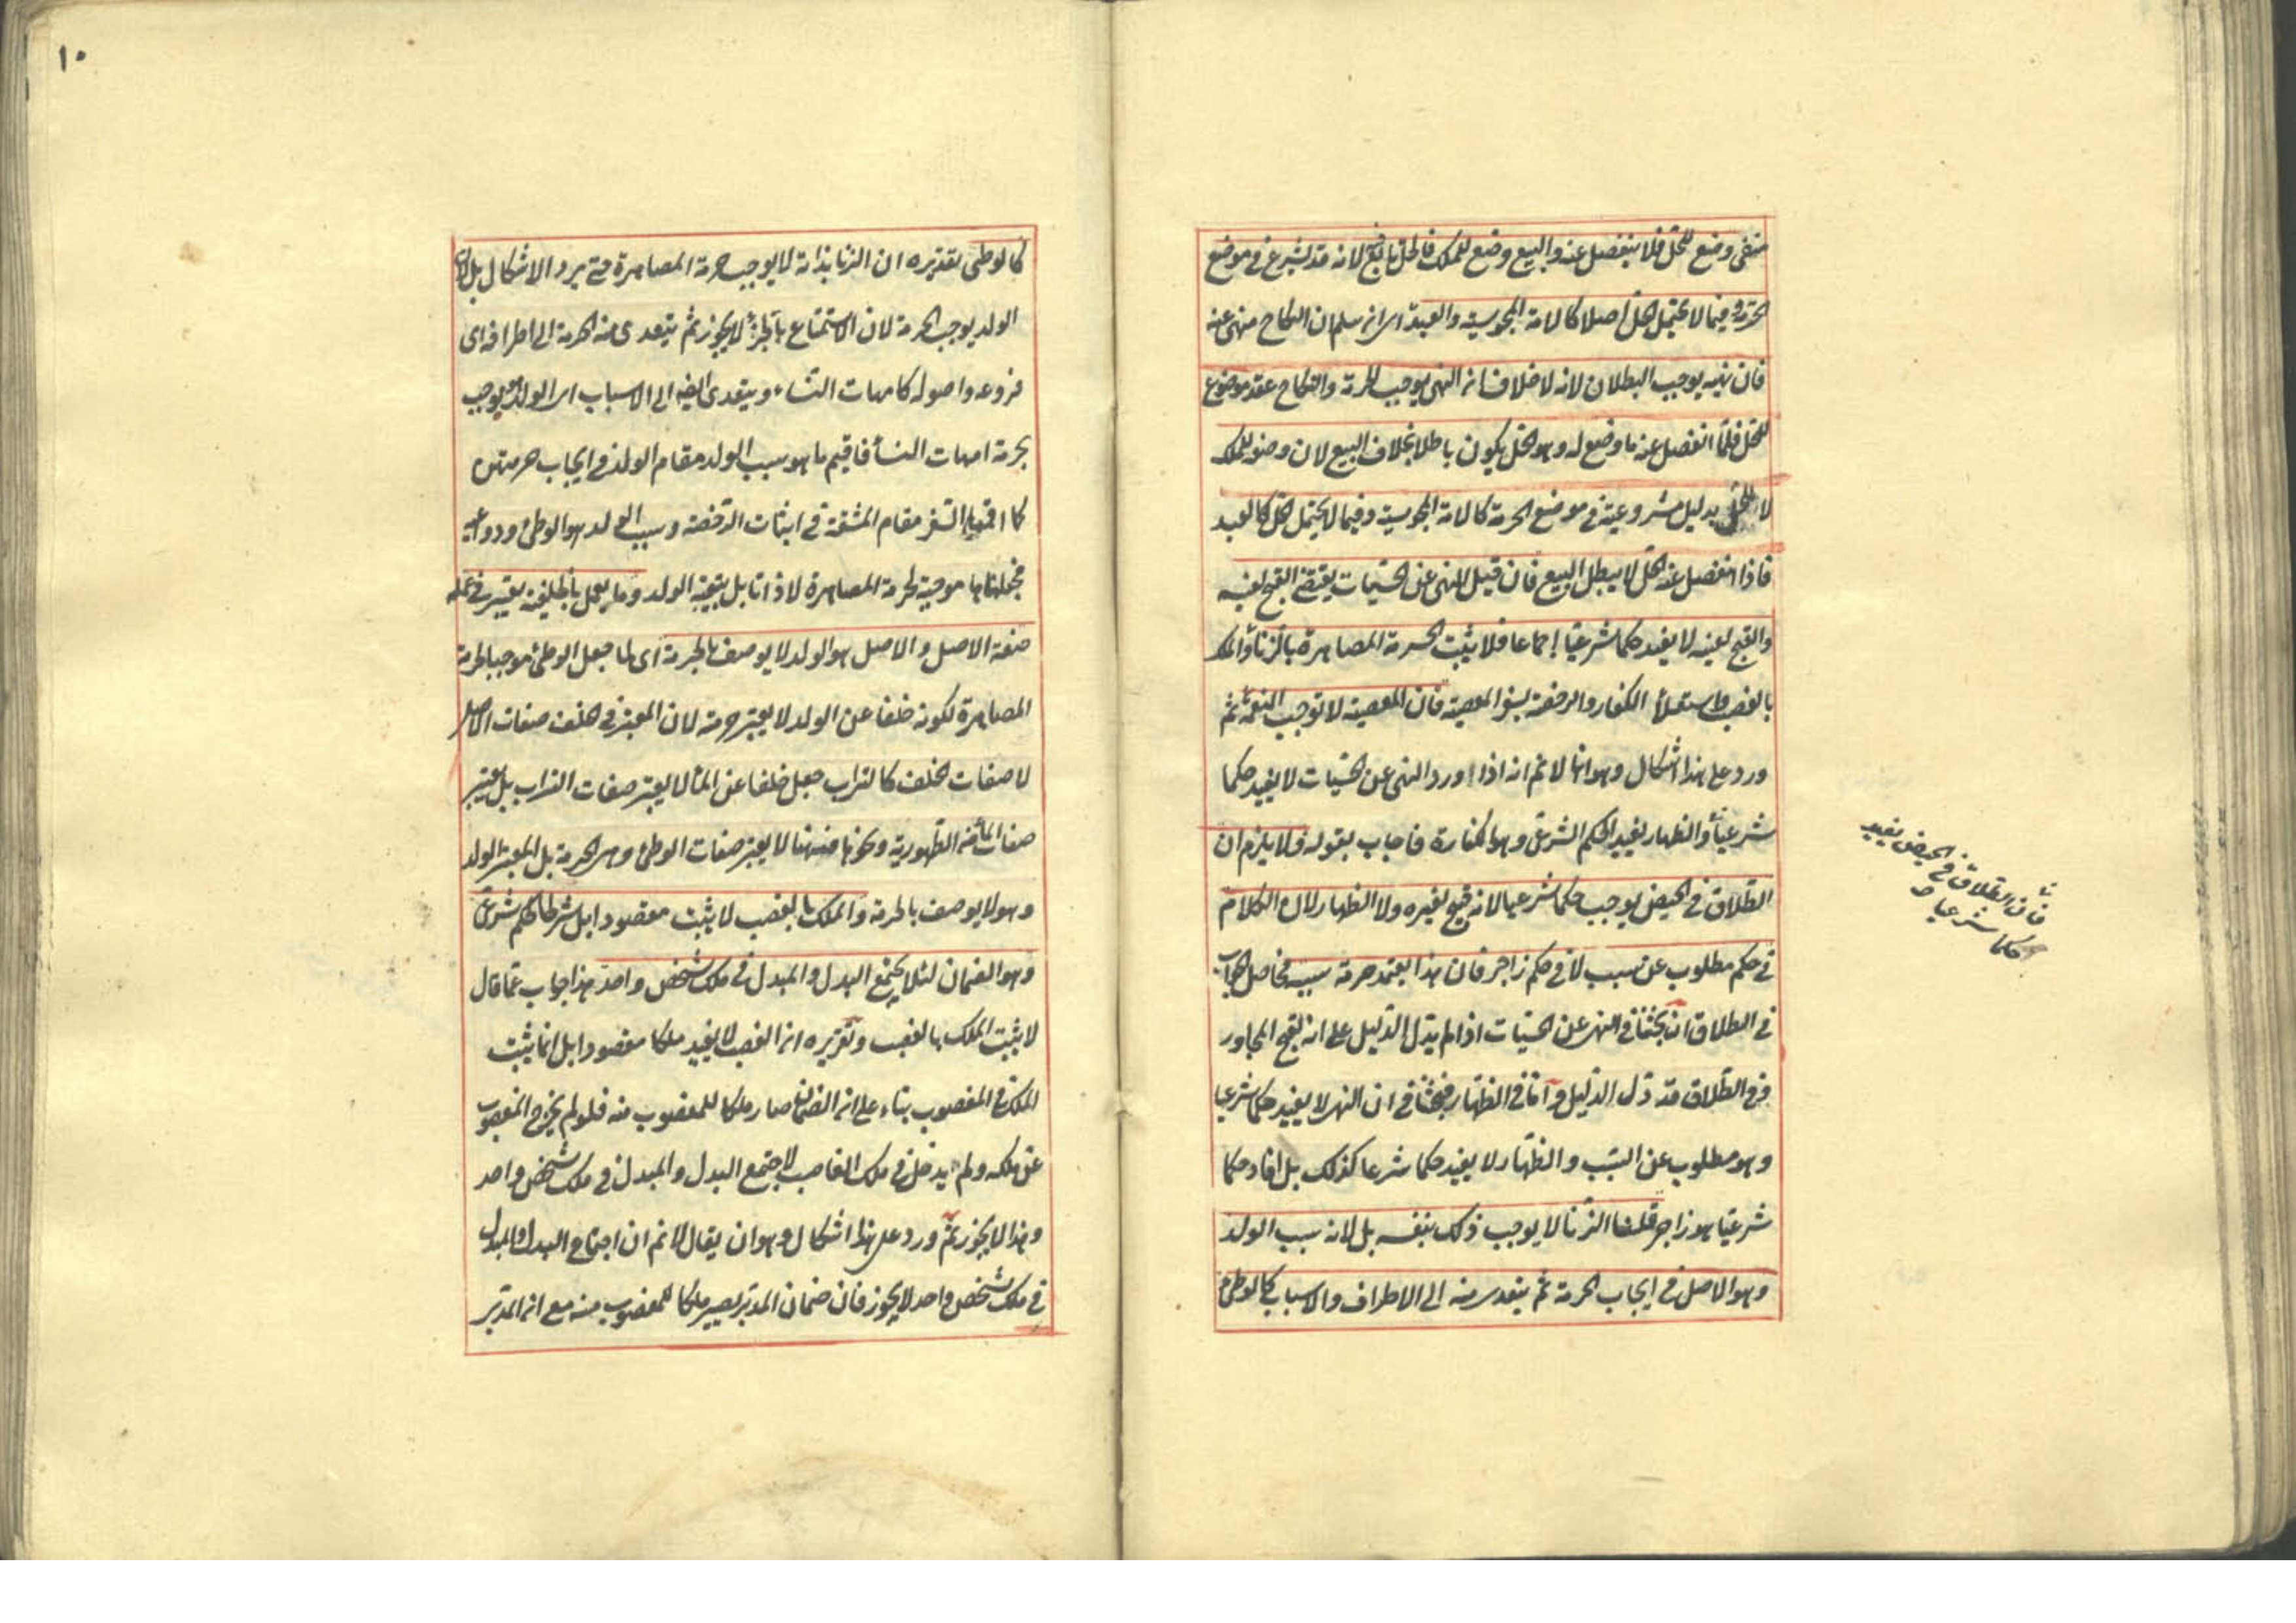 منفى وضع للحل فلا ينفصل عنه والبيع وضع للملك فالحل تابع لانه قد يشرع فى موضع
الحرمة وفيما لا يحتمل الحل اصلا كالامة المجوسية والعبد اى ان سلم ان النكاح منهى عنه
فان نهيه يوجب البطلان لانه لا خلاف ان النهى يوجب الحرمة والنكاح عقد موضوع
للحل فلما انفصل عنه ما وضع له وهو الحل يكون باطلا بخلاف البيع لان وضعه للملك
لا للحل بدليل مشروعيته فى موضع الحرمة كالامة المجوسية وفيما لا يحتمل الحل كالعبد
فاذا انفصل عنه الحل لا يبطل البيع فان قيل النهى عن الحسيات يقتضى القبح لعينه
والقبح لعينه لا يفيد حكما شرعيا اجماعا فلا يثبت الحرمة المصاهرة بالزنا والملك
بالغصب واستيلاء الكفار والرخصة بسفر المعصية فان المعصية لا توجب النعمة ثم
ورد على هذا اشكال وهو انا لا نم انه اذا ورد النهى عن الحسيات لا يفيد حكما
شرعيا والظهار يفيد الحكم الشرعى وهو الكفارة فاجاب بقوله ولا يلزم ان
الطلاق فى الحيض يوجب حكما شرعيا لانه قبيح لغيره ولا الظهار لان الكلام
فى حكم مطلوب عن سبب لا فى حكم زاجر فان هذا يعتمد حرمة سببه فحاصل الجواب
فى الطلاق ان بحثنا فى النهى عن الحسيات اذا لم يدل الدليل على انه لقبح المجاور
وفى الطلاق قد دل الدليل واما فى الظهار فبحثنا فى ان النهى لا يفيد حكما شرعيا
وهو مطلوب عن السبب والظهار لا يفيد حكما شرعا كذلك بل افاد حكما
شرعيا هو زاجر قلنا الزنا لا يوجب ذلك بنفسه بل لانه سبب الولد
وهو الاصل فى ايجاب الحرمة ثم يتعدى منه الى الاطراف والاسباب كالوطئ
فان الطلاق فى الحيض يفيد
حكما شرعيا
١٠
كالوطى تقديره ان الزنا بذاته لا يوجب حرمة المصاهرة حتى يرد الاشكال بل لان
الولد يوجب الحرمة لان الاستمتاع بالجزء لا يجوز ثم يتعدى منه الحرمة الى اطرافه اى
فروعه واصوله كامهات النساء ويتعدى ايضا الى الاسباب اى الولد يوجب
بحرمة امهات النساء فاقيم ما هو سبب الولد مقام الولد فى ايجاب حرمتهن
كما اقمنا السفر مقام المشقة فى اثبات الرخصة وسبب الولد هو الوطئ ودواعيه
فجعلناها موجبة لحرمة المصاهرة لا ذاتا بل بتبعية الولد وما يعمل بالخلفية يعتبر فى عمله
صفة الاصل والاصل هو الولد لا يوصف بالحرمة اى لما جعل الوطئ موجبا لحرمة
المصاهرة لكونه خلفا عن الولد لا يعتبر حرمته لان المعتبر فى الخلف صفات الاصل
لا صفات الخلف كالتراب جعل خلفا عن الماء لا يعتبر صفات التراب بل يعتبر
صفات الماء من الطهورية ونحوها فههنا لا يعتبر صفات الوطئ وهى الحرمة بل المعتبر الولد
وهو لا يوصف بالحرمة والملك بالغصب لا يثبت مقصودا بل شرطا لحكم شرعى
وهو الضمان لئلا يجتمع البدل والمبدل فى ملك شخص واحد هذا جواب عما قال
لا يثبت الملك بالغصب وتقريره ان الغصب لا يفيد ملكا مقصودا بل انما يثبت
الملك فى المغصوب بناء على ان الضمان صار ملكا للمغصوب منه فلو لم يخرج المغصوب
عن ملكه ولم يدخل فى ملك الغاصب لاجتمع البدل والمبدل فى ملك شخص واحد
وهذا لا يجوز ثم ورد على هذا اشكال وهو ان يقال لا نم ان اجتماع البدل والمبدل
فى ملك شخص واحد لا يجوز فان ضمان المدبر يصير ملكا للمغصوب منه مع ان المدبر